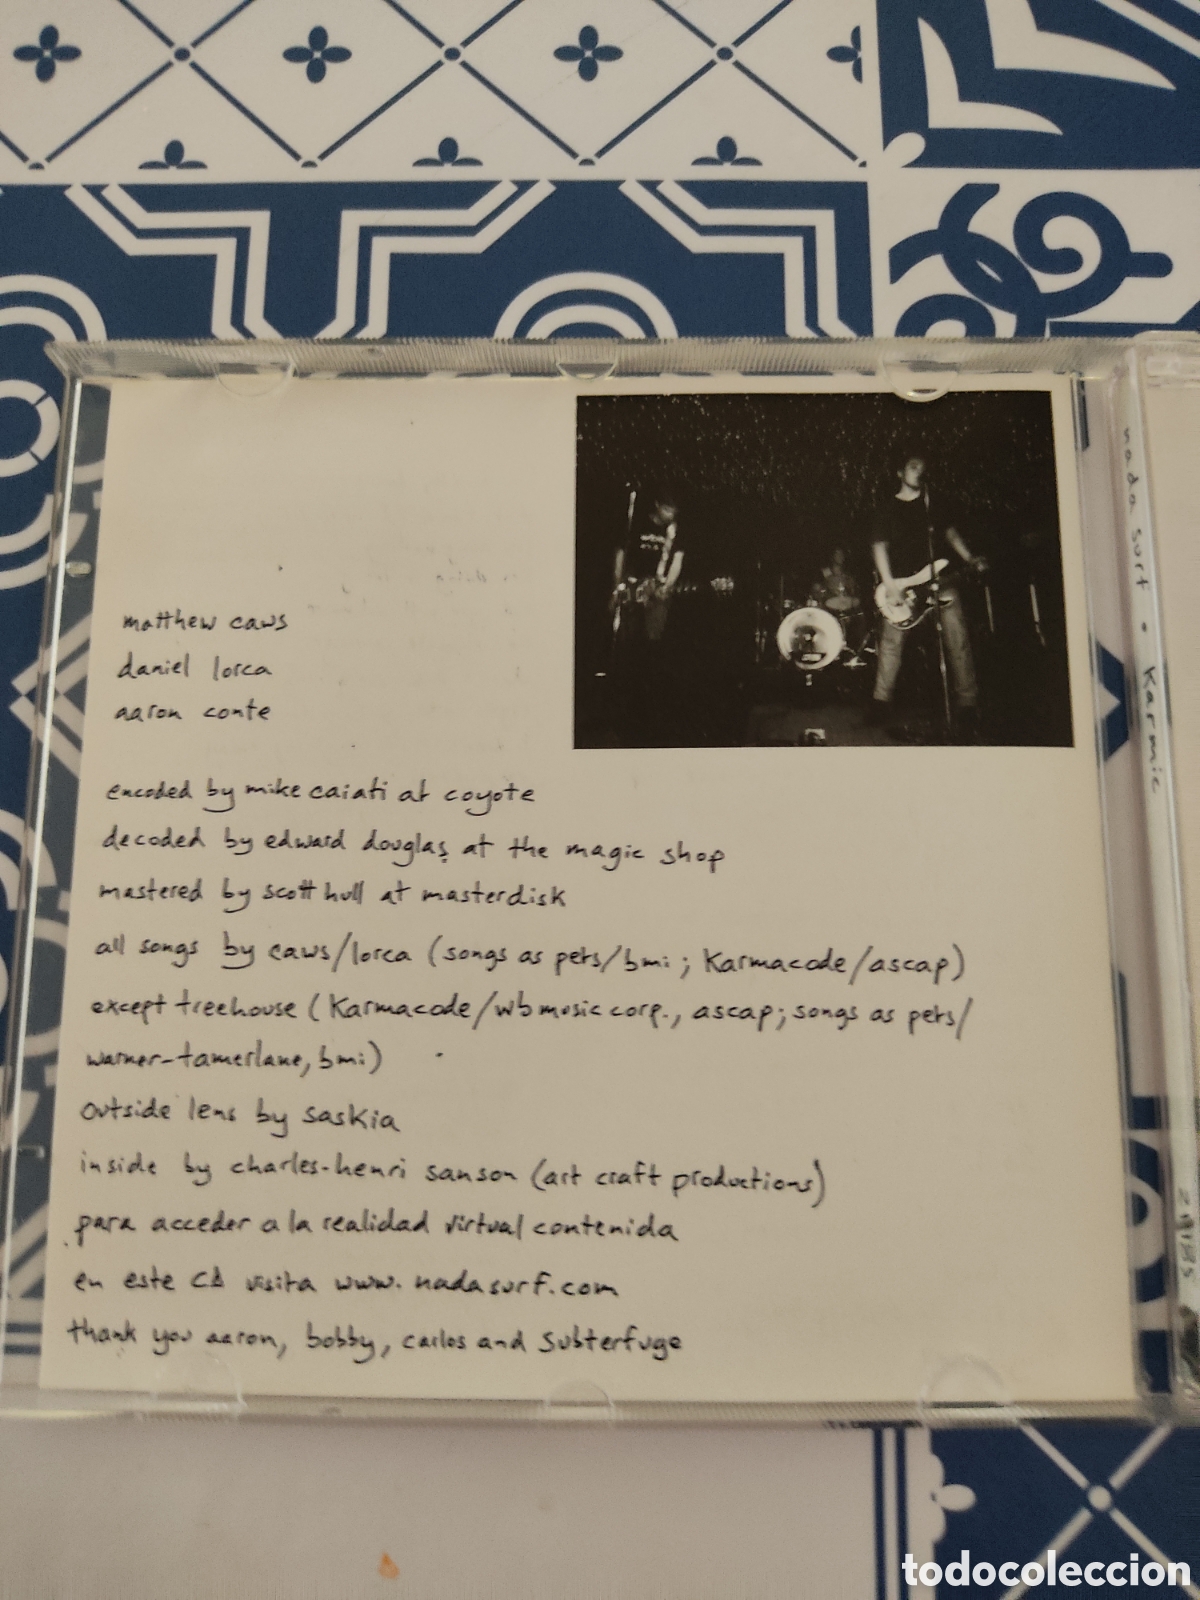 matthew caws
daniel lorca
aaron conte
encoded by mike caiati at coyote
decoded by edward douglas at the magic shop
mastered by scott hull at masterdisk
all songs by caws/lorca (songs as pets/bmi; Karmacode/ascap)
except treehouse (Karmacode/wb music corp., ascap; songs as pets/
warner-tamerlane, bmi)
outside lens by saskia
inside by charles-henri sanson (art craft productions)
para acceder a la realidad virtual contenida
en este CD visita www.nadasurf.com
thank you aaron, bobby, carlos and Subterfuge
nada surf • Karmic
todocoleccion